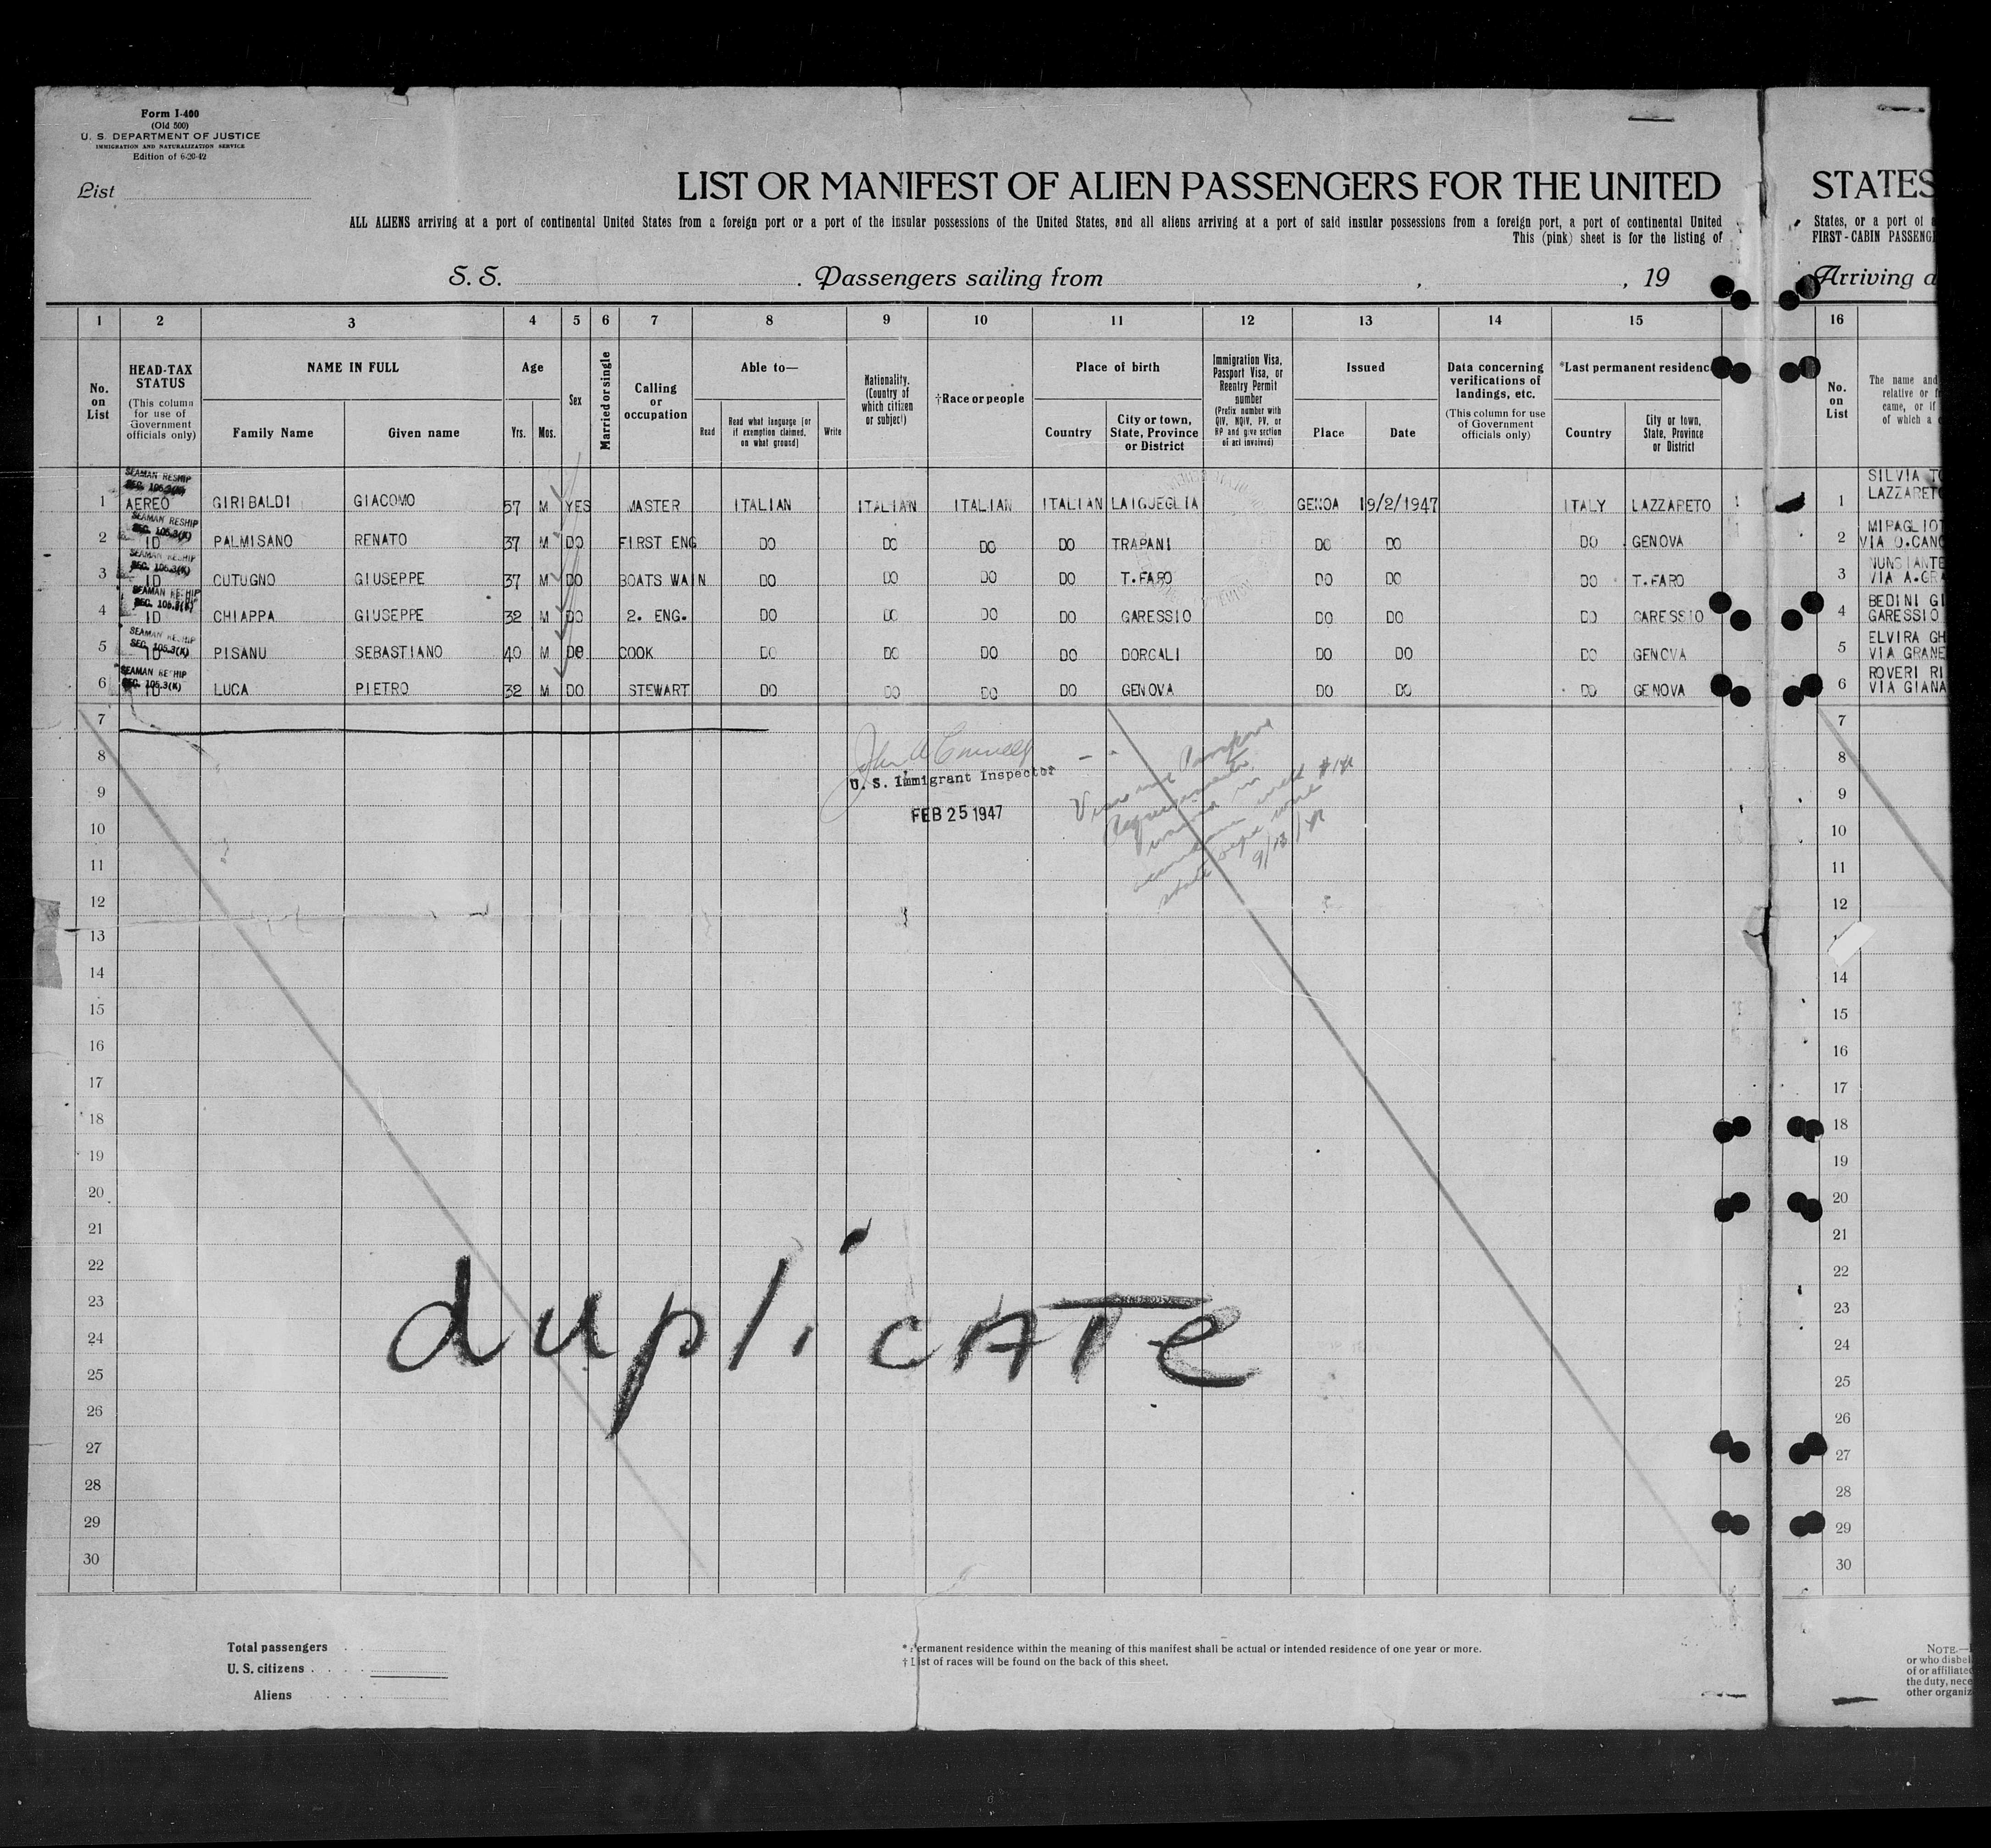 Form I-400
(Old 500)
U. S. DEPARTMENT OF JUSTICE
IMMIGRATION AND NATURALIZATION SERVICE
Edition of 6-20-42
List
LIST OR MANIFEST OF ALIEN PASSENGERS FOR THE UNITED
STATES
ALL ALIENS arriving at a port of continental United States from a foreign port or a port of the insular possessions of the United States, and all aliens arriving at a port of said insular possessions from a foreign port, a port of continental United
States, or a port of
This (pink) sheet is for the listing of
FIRST-CABIN PASSENG
S. S. . Passengers sailing from , , 19
Arriving a
1 2 3 4 5 6 7 8 9 10 11 12 13 14 15 16
No. on List
HEAD-TAX STATUS
(This column for use of Government officials only)
NAME IN FULL
Family Name Given name
Age
Yrs. Mos.
Sex
Married or single
Calling or occupation
Able to—
Read
Read what language [or if exemption claimed, on what ground]
Write
Nationality. (Country of which citizen or subject)
†Race or people
Place of birth
Country
City or town, State, Province or District
Immigration Visa, Passport Visa, or Reentry Permit number
(Prefix number with QIV, NQIV, PV, or RP and give section of act involved)
Issued
Place Date
Data concerning verifications of landings, etc.
(This column for use of Government officials only)
*Last permanent residenc
Country
City or town, State, Province or District
No. on List
The name and
relative or f
came, or if
of which a
SEAMAN RESHIP
SEC. 105.3(K)
1 AEREO GIRIBALDI GIACOMO 57 M YES MASTER ITALIAN ITALIAN ITALIAN ITALIAN LAIGUEGLIA GENOA 19/2/1947 ITALY LAZZARETO 1
SILVIA TO
LAZZARETO
SEAMAN RESHIP
SEC. 105.3(K)
2 ID PALMISANO RENATO 37 M DO FIRST ENG DO DO DO DO TRAPANI DO DO DO GENOVA 2
VIA O.CANC
SEAMAN RESHIP
SEC. 105.3(K)
3 ID CUTUGNO GIUSEPPE 37 M DO BOATS WAIN DO DO DO DO T.FARO DO DO DO T.FARO 3
VIA A.GR
SEAMAN RESHIP
SEC. 105.3(K)
4 ID CHIAPPA GIUSEPPE 32 M DO 2. ENG. DO DO DO DO GARESSIO DO DO DO GARESSIO 4
BEDINI GI
GARESSIO
SEAMAN RESHIP
SEC. 105.3(K)
5 ID PISANU SEBASTIANO 40 M DO COOK DO DO DO DO DORGALI DO DO DO GENOVA 5
ELVIRA GH
VIA GRANE
SEAMAN RESHIP
SEC. 105.3(K)
6 ID LUCA PIETRO 32 M DO STEWART DO DO DO DO GENOVA DO DO DO GENOVA 6
ROVERI RI
VIA GIANA
7 7
8 8
U. S. Immigrant Inspector
9 9
FEB 25 1947
10 10
11 11
12 12
13
14 14
15 15
16 16
17 17
18 18
19 19
20 20
21 21
22 22
23 23
duplicATe
24 24
25 25
26 26
27 27
28 28
29 29
30 30
Total passengers
U. S. citizens
Aliens
* Permanent residence within the meaning of this manifest shall be actual or intended residence of one year or more.
† List of races will be found on the back of this sheet.
NOTE.—
or who disbel
of or affiliate
the duty, nece
other organiz